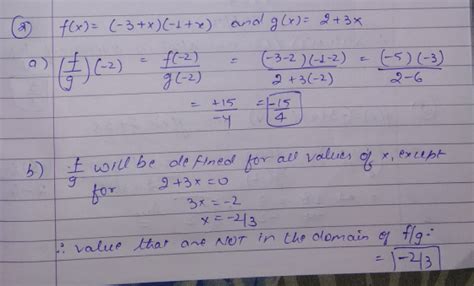 ② f(x)= (-3+x)(-1+x) and g(x)= 2+3x
a) (f/g)(-2) = f(-2)/g(-2) = (-3-2)(-1-2)/2+3(-2) = (-5)(-3)/2-6
= +15/-4 = -15/4
b) f/g will be defined for all values of x, except
for 2+3x=0
3x=-2
x=-2/3
∴ value that are NOT in the domain of f/g:
= -2/3